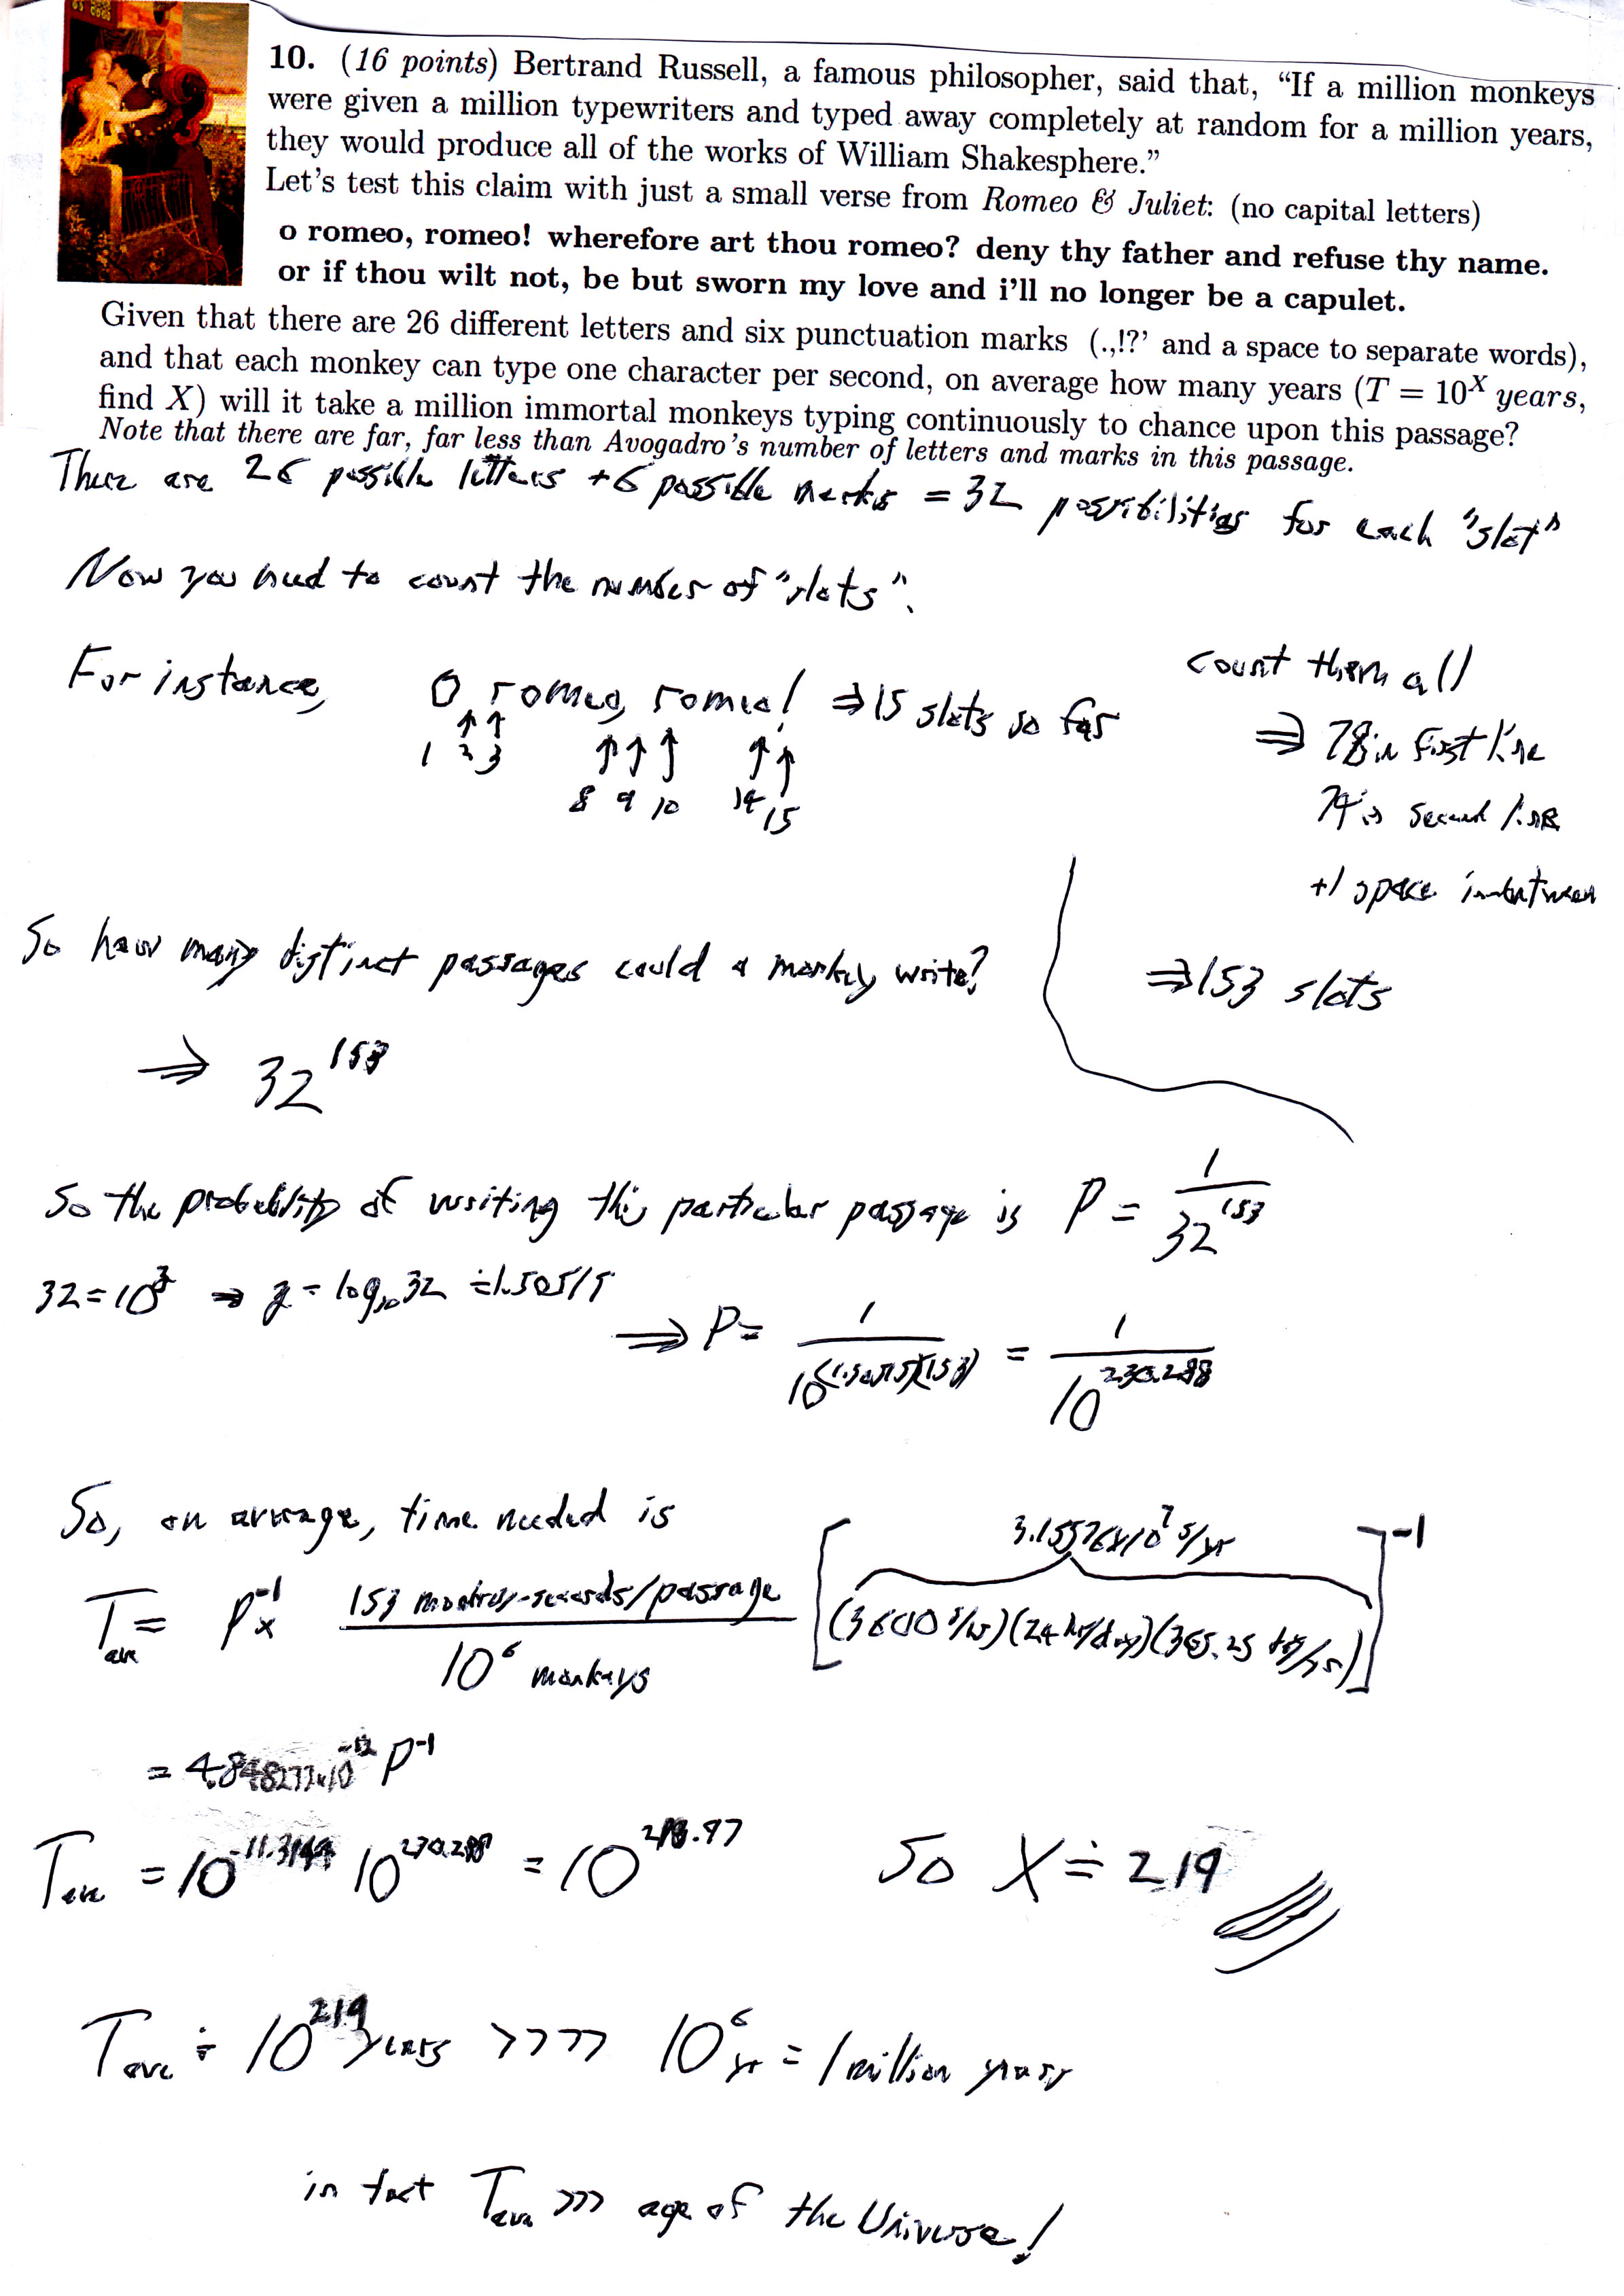 10. (16 points) Bertrand Russell, a famous philosopher, said that, "If a million monkeys
were given a million typewriters and typed away completely at random for a million years,
they would produce all of the works of William Shakesphere."
Let's test this claim with just a small verse from Romeo & Juliet: (no capital letters)
o romeo, romeo! wherefore art thou romeo? deny thy father and refuse thy name.
or if thou wilt not, be but sworn my love and i'll no longer be a capulet.
Given that there are 26 different letters and six punctuation marks (.,!?' and a space to separate words),
and that each monkey can type one character per second, on average how many years (T = 10^X years,
find X) will it take a million immortal monkeys typing continuously to chance upon this passage?
Note that there are far, far less than Avogadro's number of letters and marks in this passage.
There are 26 possible letters + 6 possible marks = 32 possibilities for each "slot"
Now you need to count the number of "slots".
For instance, O romeo, romeo! ⇒ 15 slots so far
1 2 3 8 9 10 14 15
count them all
⇒ 78 in first line
74 in second line
+1 space inbetween
⇒ 153 slots
So how many distinct passages could a monkey write?
⇒ 32^153
So the probability of writing this particular passage is P = 1/32^153
32 = 10^z ⇒ z = log₁₀ 32 ≐ 1.50515
⇒ P = 1/10^(1.50515)(153) = 1/10^230.288
So, on average, time needed is
3.15576x10^7 s/yr
T_ave = P^-1 x 153 monkey-seconds/passage / 10^6 monkeys [(3600 s/hr)(24 hr/day)(365.25 day/yr)]^-1
= 4.848277x10^-12 P^-1
T_ave = 10^-11.3144 10^230.288 = 10^218.97 So X ≐ 219
T_ave ≐ 10^219 years >>>> 10^6 yr = 1 million years
in fact T_ave >>> age of the Universe!